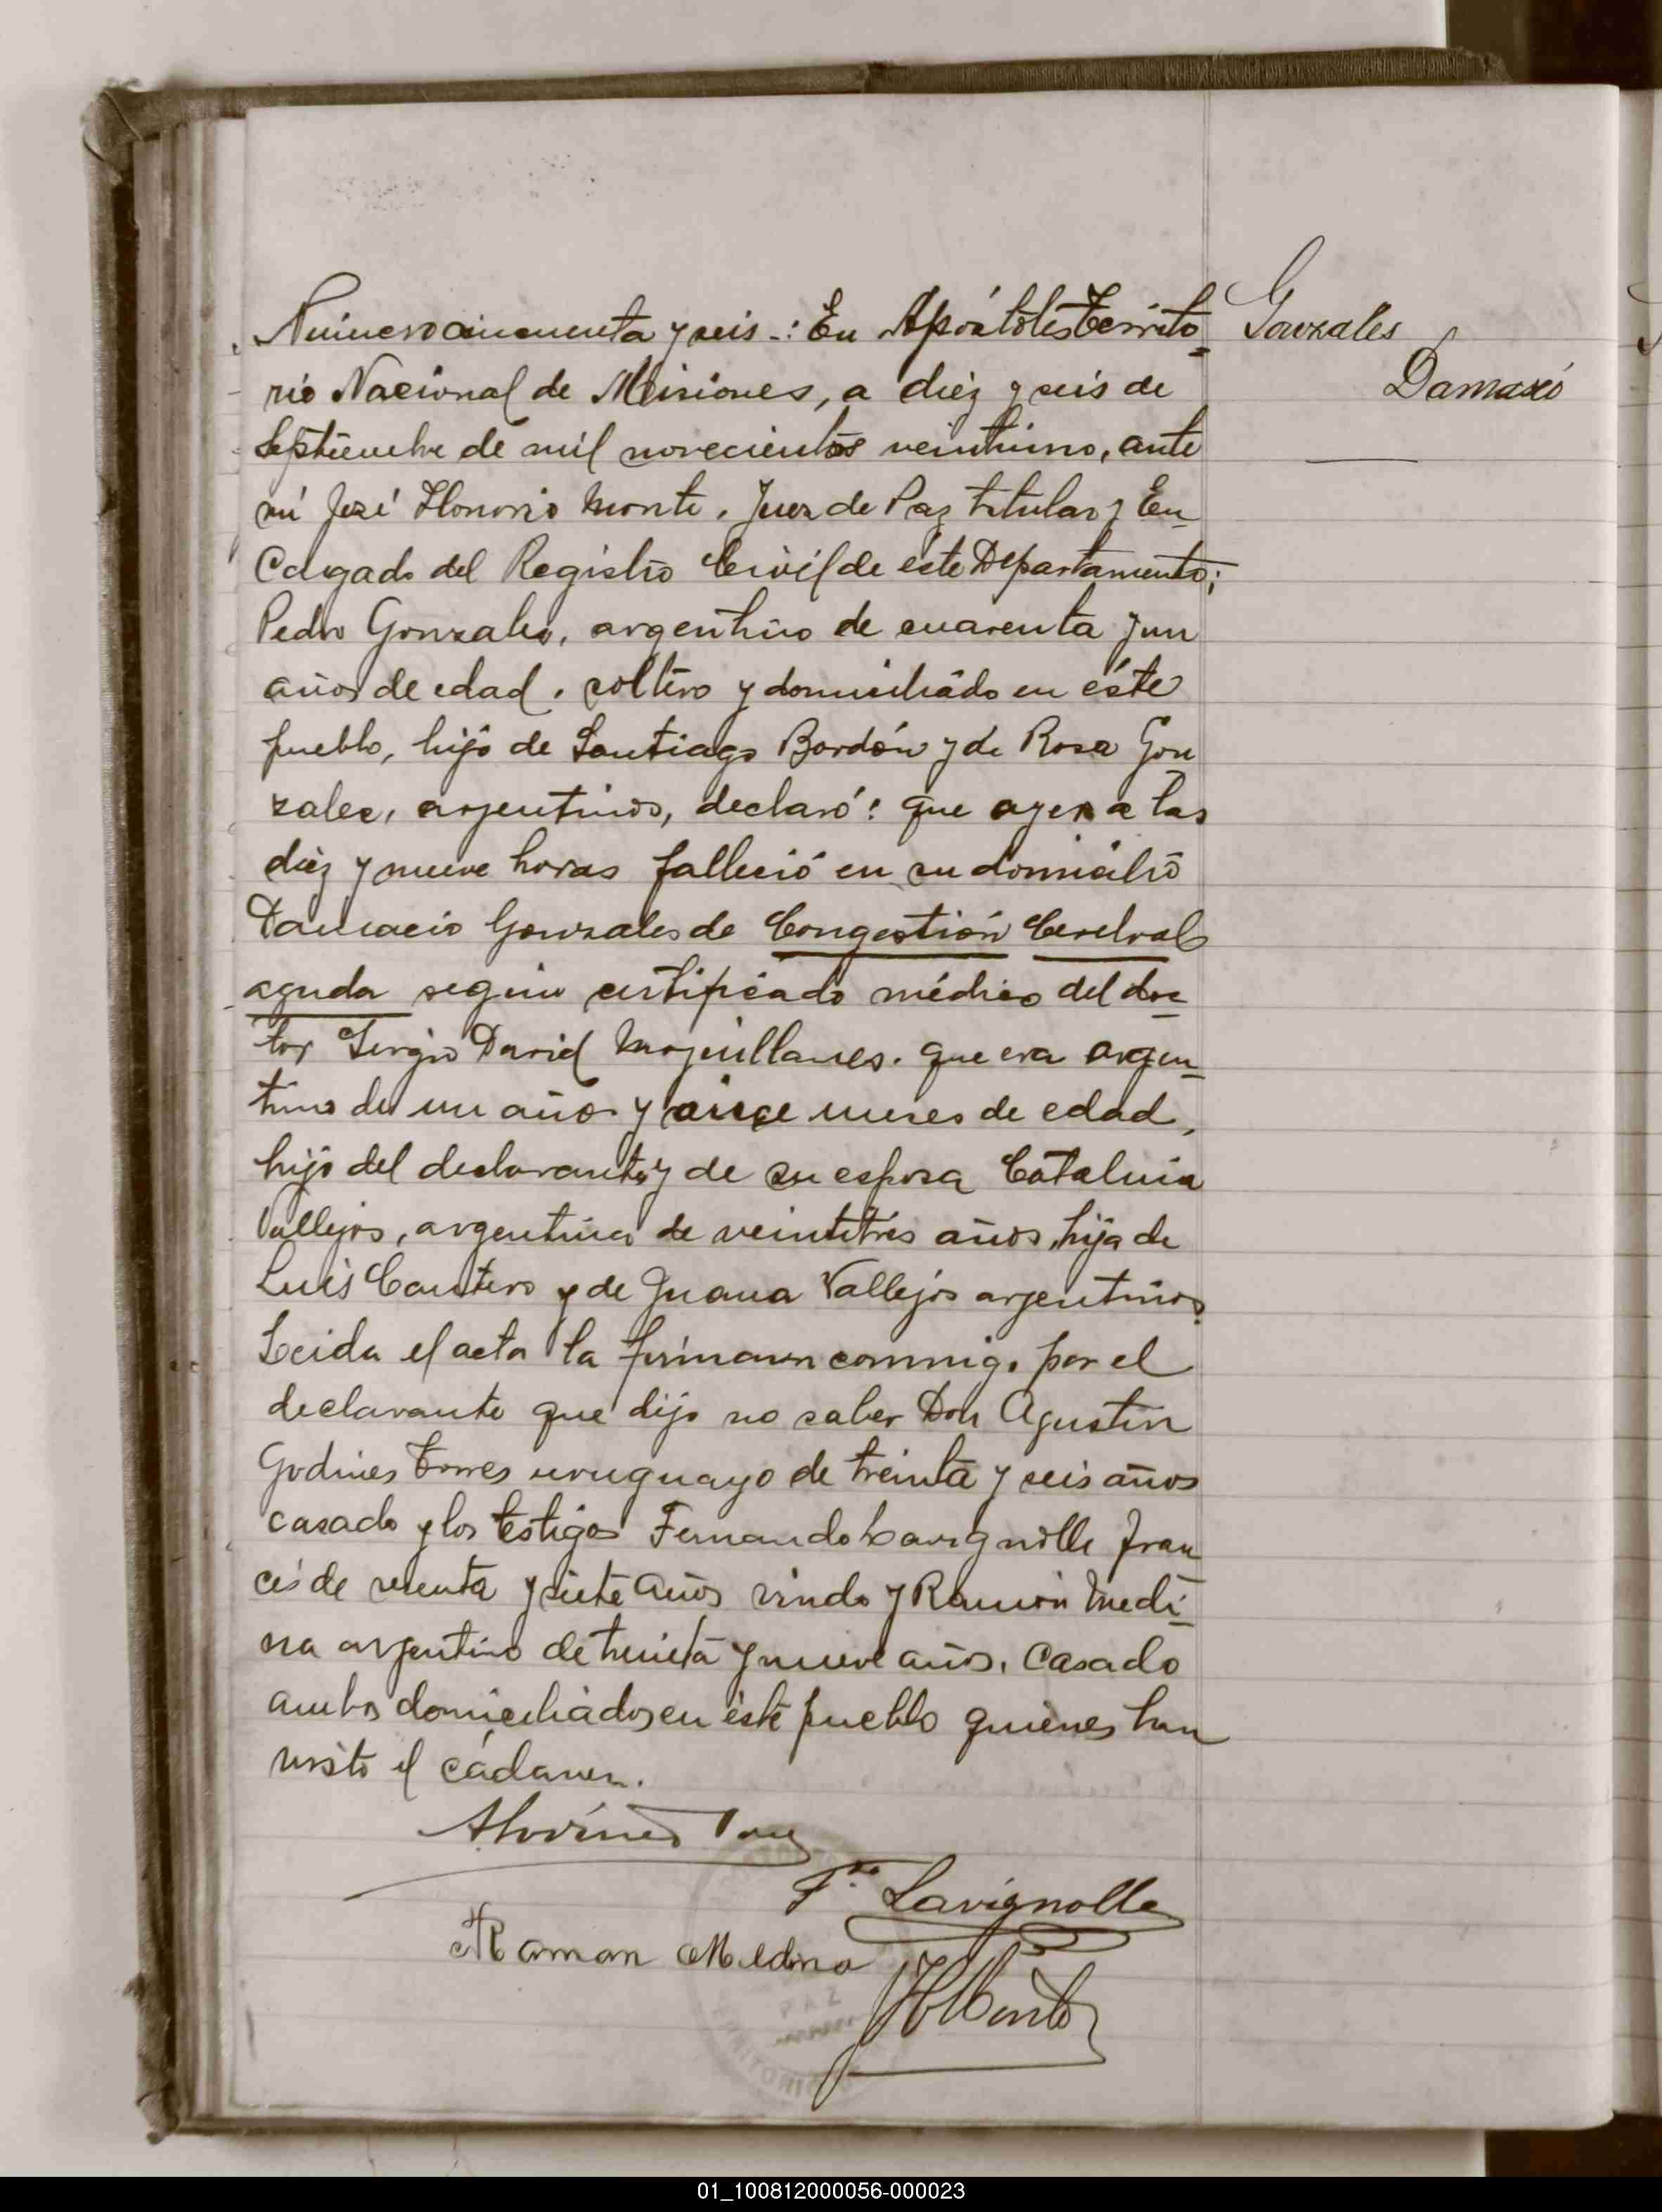 Gonzales
Damasio
Numero cincuenta y seis.-: En Apóstoles Territo-
rio Nacional de Misiones, a diez y seis de
Septiembre de mil novecientos veintiuno, ante
mi José Honorio Monte, Juez de Paz titular y En-
cargado del Registro Civil de éste Departamento;
Pedro Gonzales, argentino de cuarenta y un
años de edad, soltero y domiciliado en éste
pueblo, hijo de Santiago Bordón y de Rosa Gon
zales, argentinos, declaró: que ayer a las
diez y nueve horas falleció en su domicilio
Damacio Gonzales de Congestión Cerebral
aguda según certificado médico del doc-
tor Sergio David Magullanes. que era argen-
tino de un año y once meses de edad,
hijo del declarante y de su esposa Catalina
Vallejos, argentina de veintitrés años, hija de
Luis Cantero y de Juana Vallejos argentinos.
Leida el acta la firmaron conmigo por el
declarante que dijo no saber Don Agustin
Godines Torres uruguayo de treinta y seis años
casado y los testigos Fernando Lavignolle fran
cés de sesenta y siete años viudo y Ramón Medi-
na argentino de treinta y nueve años, casado
ambos domiciliados en éste pueblo quienes han
visto el cádaver.
F.do Lavignolle
Ramon Medina
JHMonte
PAZ
01_100812000056-000023